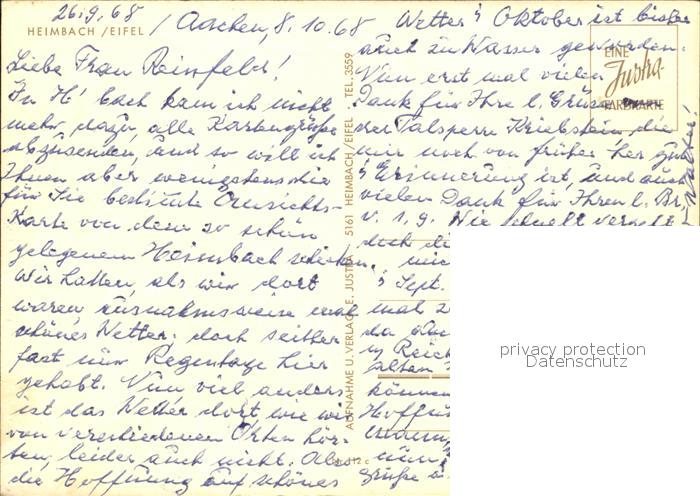 26.9.68
HEIMBACH /EIFEL
/ Aachen, 8.10.68
Liebe Frau Reinfeld!
In H'bach kam ich nicht
mehr dazu, alle Kartengrüße
abzusenden, und so will ich
Ihnen aber wenigstens die
für Sie bestimte Ansichts-
Karte von dem so schön
gelegenem Heimbach schicken.
Wir hatten, als wir dort
waren, ausnahmsweise mal
schönes Wetter; doch seither
fast nur Regentage hier
gehabt. Nun viel anders
ist das Wetter dort wie wir
von verschiedenen Orten hör-
ten, leider auch nicht. Also
die Hoffnung auf schönes
AUFNAHME U. VERLAG E. JUSTRA 5161 HEIMBACH / EIFEL TEL. 3559
EINE
Justra
FARBKARTE
Wetter i. Oktober ist bisher
auch zu Wasser geworden.
Nun erst mal vielen
Dank für Ihre l. Grüße
der Talsperre Kriebstein die
mir noch von früher her gut
i. Erinnerung ist, und auch
vielen Dank für Ihren l. Br.
v. 1.9. Wie schnell vergeht
doch di
mic
i. Sept.
mal z
da
Reich
alten
können
Hoffnu
warum
nun
Grüße
privacy protection
Datenschutz